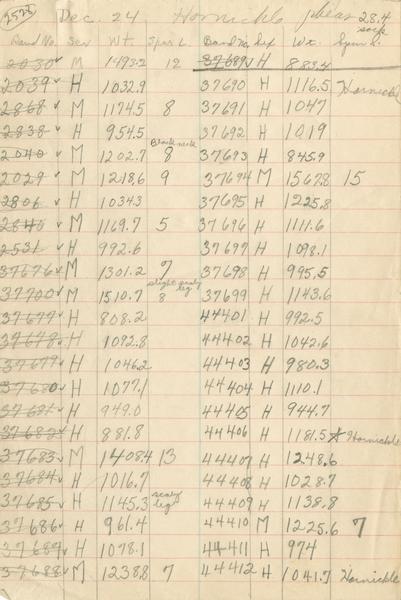 2522 Dec. 24 Hornickls pheas 28.4
sock
Band No. Sex Wt. Spur L. Band No. Sex Wt. Spur L.
2030 ✓ M 1493.2 12 37689 ✓ H 883.4
2039 ✓ H 1032.9 37690 H 1116.5 Hornickle
2868 ✓ M 1174.5 8 37691 H 1047
2838 ✓ H 954.5 37692 H 1019
Black neck
2040 ✓ M 1202.7 8 37693 H 845.9
2029 ✓ M 1218.6 9 37694 M 1567.8 15
2806 ✓ H 1034.3 37695 H 1225.8
2840 ✓ M 1169.7 5 37696 H 1111.6
2531 ✓ H 992.6 37697 H 1098.1
37676 ✓ M 1301.2 7 37698 H 995.5
slight scaly
37700 ✓ M 1510.7 leg 8 37699 H 1143.6
37677 ✓ H 808.2 44401 H 992.5
37678 ✓ H 1092.8 44402 H 1042.6
37679 ✓ H 1046.2 44403 H 980.3
37680 ✓ H 1077.1 44404 H 1110.1
37681 ✓ H 949.0 44405 H 944.7
37682 ✓ H 881.8 44406 H 1181.5 * Hornickle
37683 ✓ M 1408.4 13 44407 H 1248.6
37684 ✓ H 1016.7 44408 H 1028.7
37685 ✓ H 1145.3 scaly leg 44409 H 1138.8
37686 ✓ H 961.4 44410 M 1225.6 7
37687 ✓ H 1078.1 44411 H 974
37688 ✓ M 1238.8 7 44412 H 1041.7 Hornickle